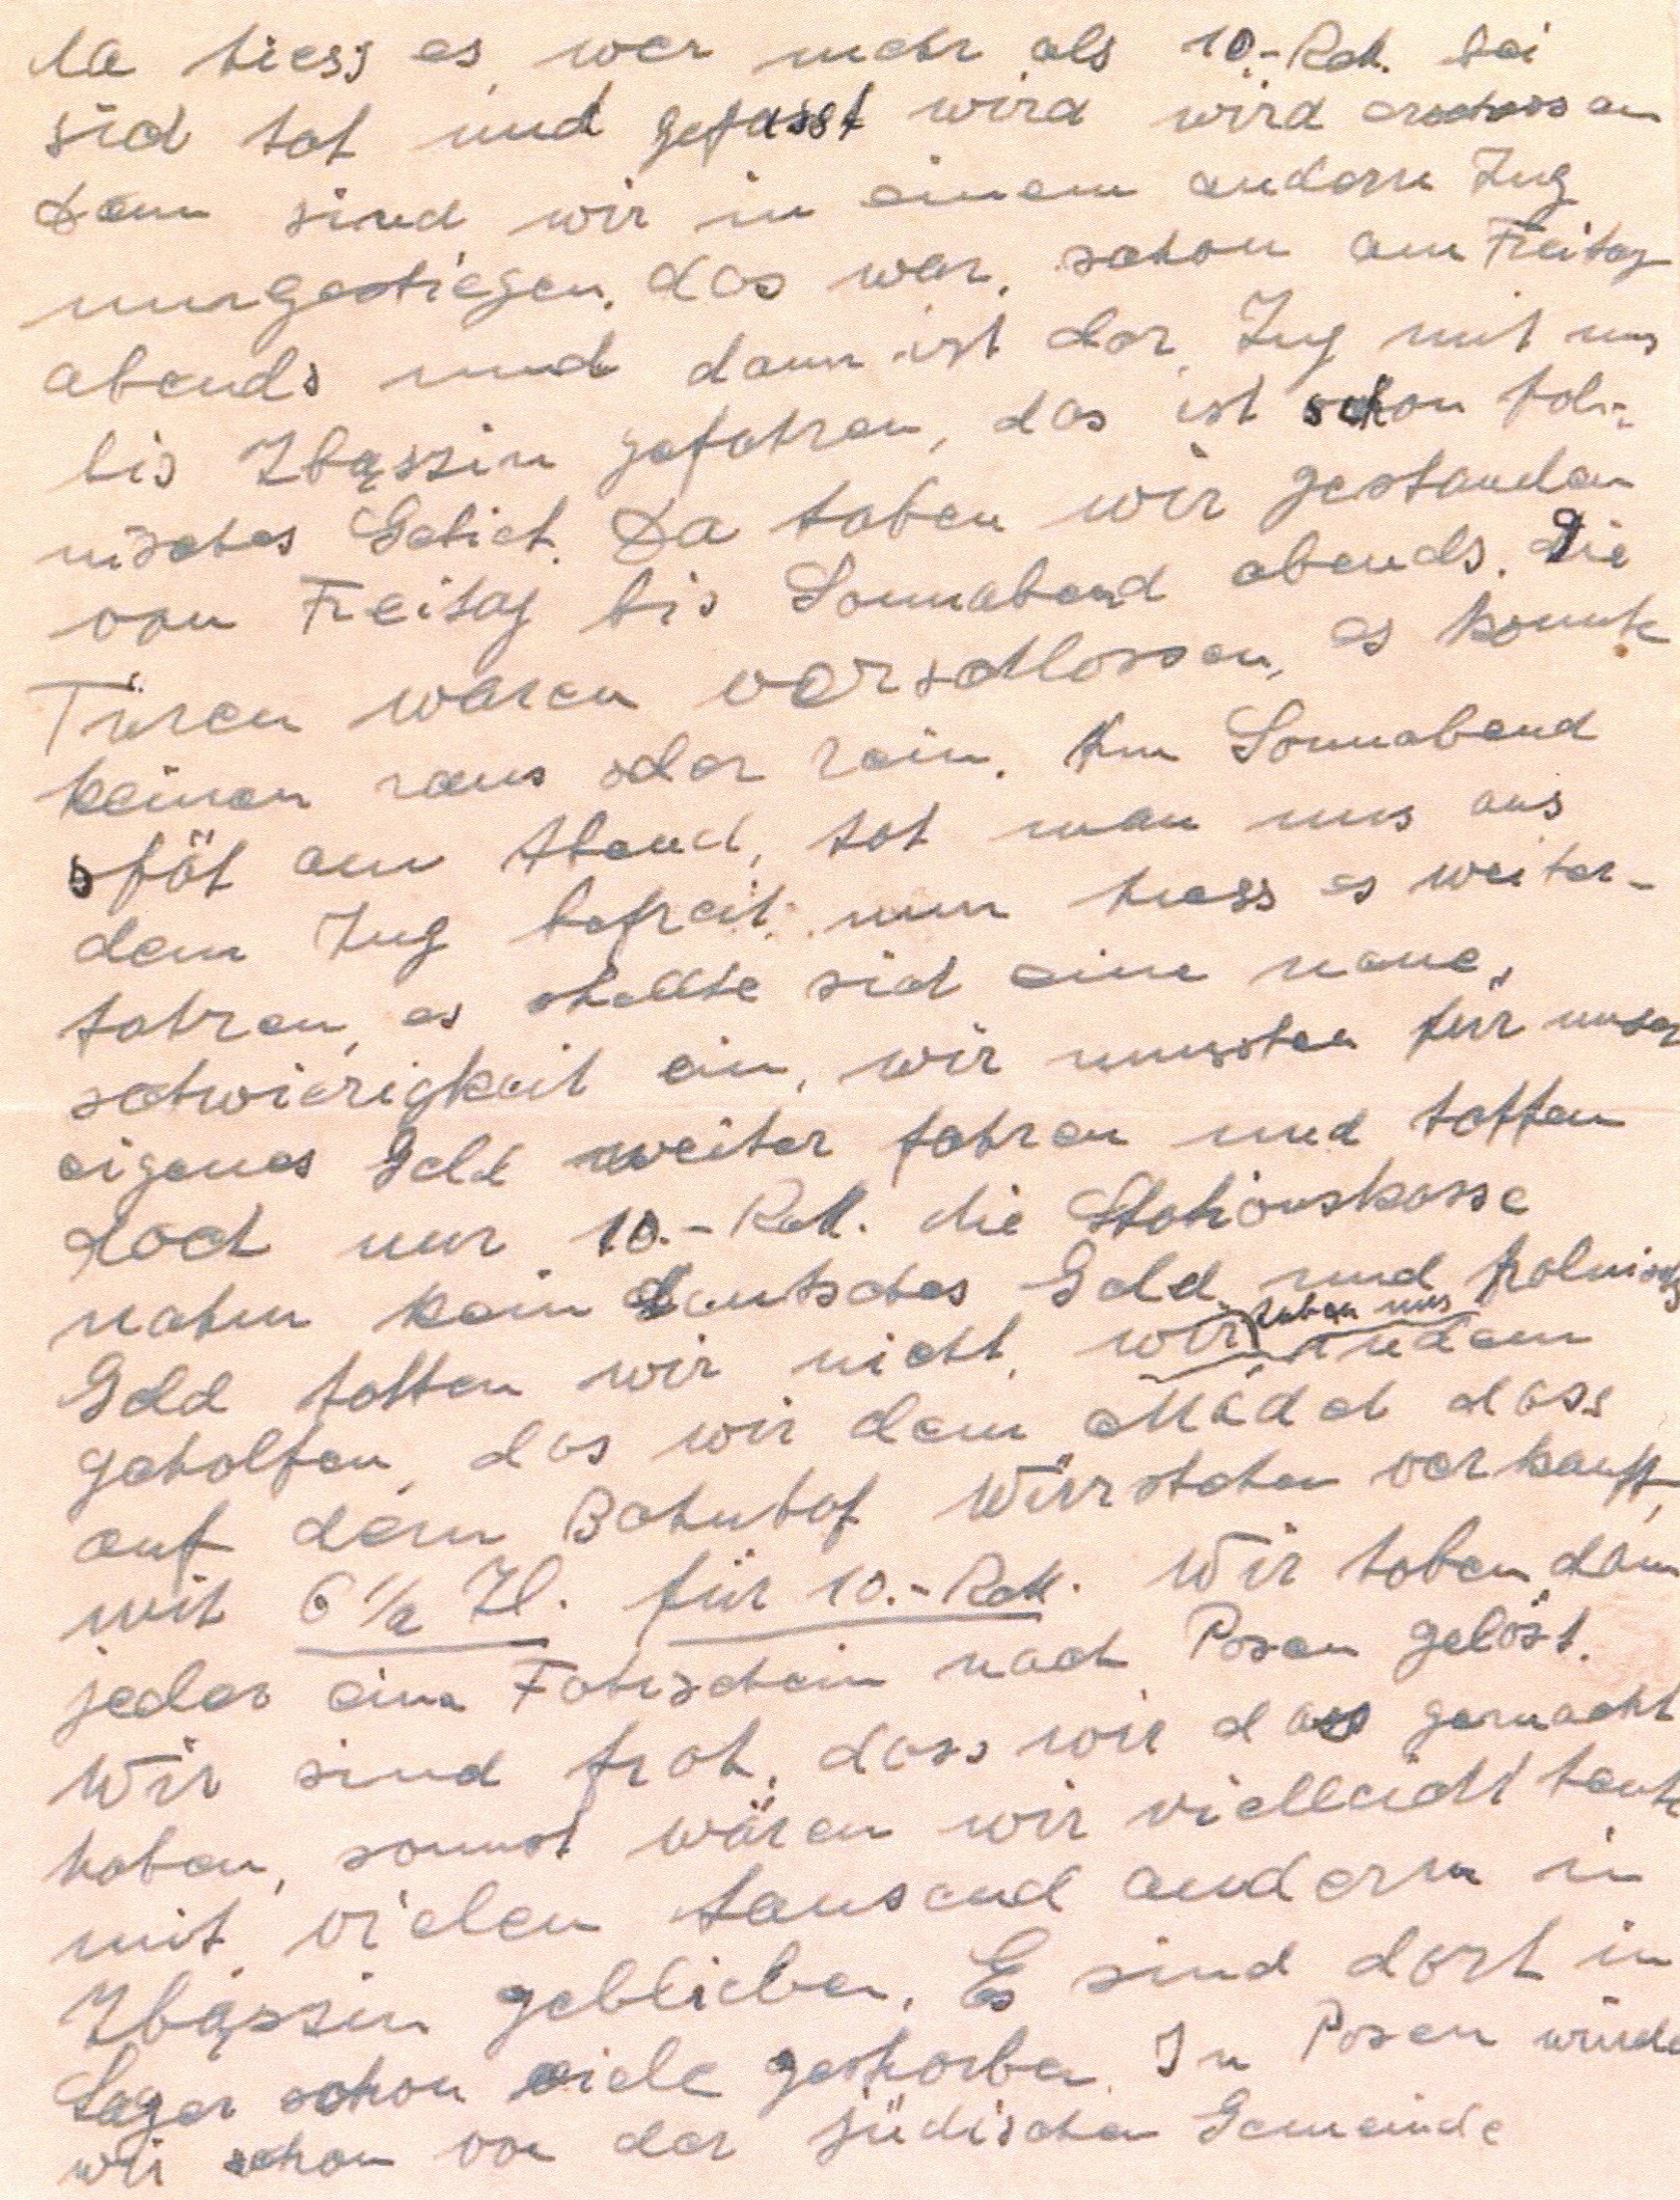 da hiess es, wer mehr als 10.- RM. bei
sich hat und gefasst wird wird erschossen
Dann sind wir in einem andern Zug
umgestiegen. das war, schon am Freitag
abends und dann ist der Zug mit uns
bis Zbąszin gefahren, das ist schon pol-
nisches Gebiet. Da haben wir gestanden
von Freitag bis Sonnabend abends. Die
Türen waren verschlossen, es konnte
keiner raus oder rein. Am Sonnabend
spät am Abend, hat man uns aus
dem Zug befreit. nun hiess es weiter-
fahren, es stellte sich eine neue,
schwierigkeit ein, wir mussten für unser
eigenes Geld weiter fahren und hatten
doch nur 10.- RM. die Stationskasse
nahm kein deutsches Geld und polnisch
Geld hatten wir nicht, wir haben uns indem
geholfen, das wir dem Mädel dass
auf dem Bahnhof Würstchen verkauft,
mit 6 1/2 Zl. für 10.- RM. Wir haben dann
jeder eine Fahrschein nach Posen gelöst.
Wir sind froh, dass wir dass gemacht
haben, sonnst wären wir vielleicht heute
mit vielen tausend andern in
Zbąszin geblieben. Es sind dort in
Lager schon viele gestorben. In Posen würde
wir schon von der jüdischen Gemeinde